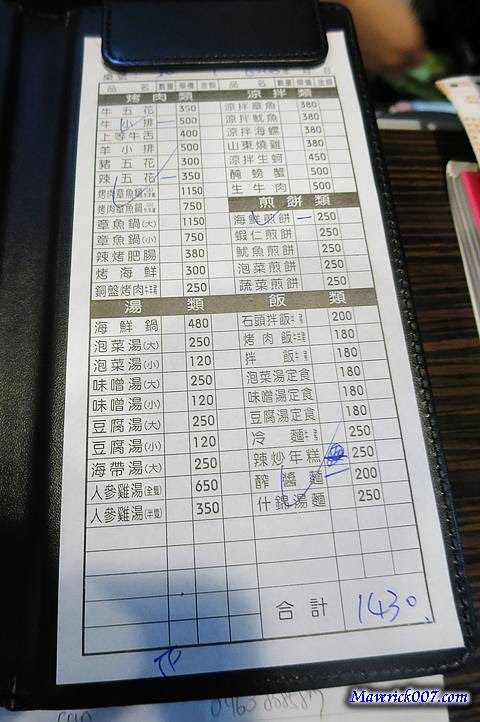 品名 數量 單價 金額
烤肉類
牛五花 350
牛小排 一 500
上等牛舌 400
羊小排 500
豬五花 300
辣五花 一 350
烤肉章魚鍋 1150
烤肉章魚鍋 750
章魚鍋(大) 1150
章魚鍋(小) 750
辣烤肥腸 380
烤海鮮 300
銅盤烤肉 250
湯類
海鮮鍋 480
泡菜湯(大) 250
泡菜湯(小) 120
味噌湯(大) 250
味噌湯(小) 120
豆腐湯(大) 250
豆腐湯(小) 120
海帶湯(大) 250
人參雞湯(全隻) 650
人參雞湯(半隻) 350
品名 數量 單價 金額
涼拌類
涼拌章魚 380
涼拌魷魚 380
涼拌海螺 380
山東燒雞 380
涼拌生蚵 450
醃螃蟹 500
生牛肉 500
煎餅類
海鮮煎餅 一 250
蝦仁煎餅 250
魷魚煎餅 250
泡菜煎餅 250
蔬菜煎餅 250
飯類
石頭拌飯 200
烤肉飯 180
拌飯 180
泡菜湯定食 180
味噌湯定食 180
豆腐湯定食 180
冷麵 250
辣炒年糕 250
酢醬麵 一 200
什錦湯麵 250
合計 1430
Mawrick007.com